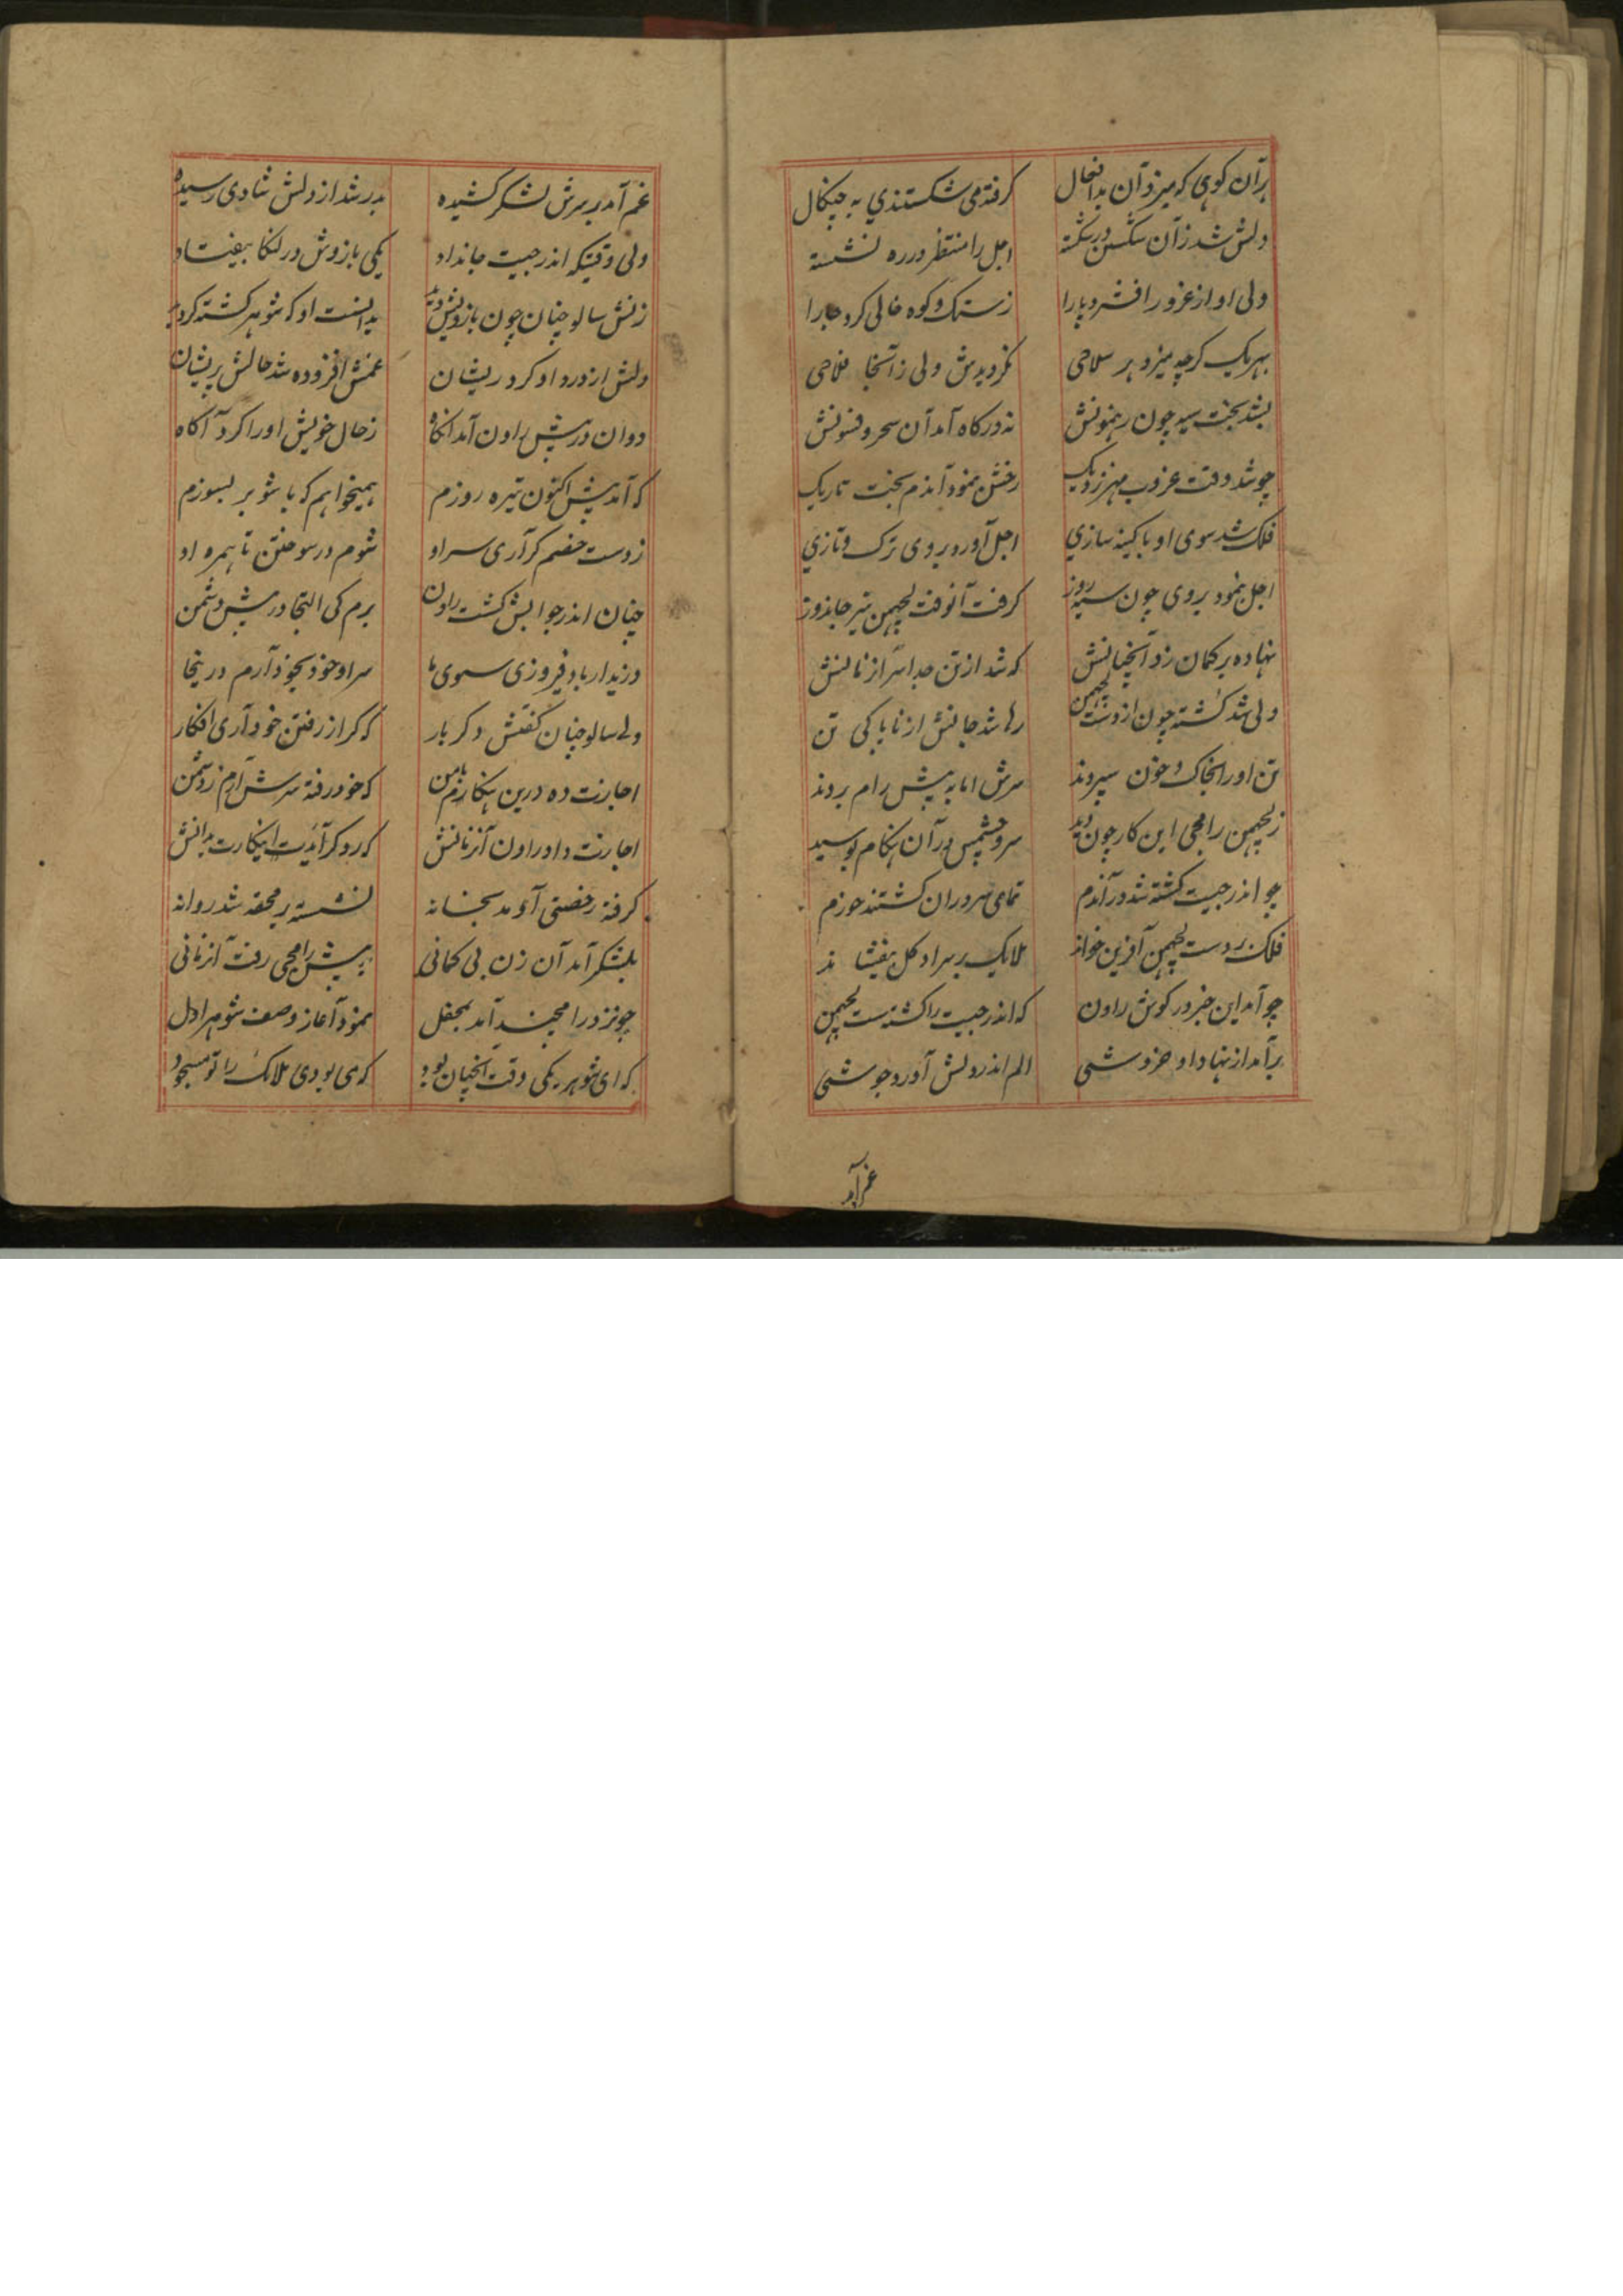 هرآن کوهی که میزد آن بدافعال گرفته می شکستندی به چنگال
دلش شد زآن شکستن در شکسته اجل را منتظر در ره نشسته
ولی او از غرور افشرد پا را ز سنگ و کوه خالی کرد جا را
بهر یک گرچه میزد هر سلاحی نگردیدش ولی زآنجا فلاحی
بشد بخت سیه چون رهنمونش نه در کار آمد آن سحر و فسونش
چو شد وقت غروب مهر نزدیک رخش بنمود آندم بخت تاریک
فلک شد سوی او با کینه سازی اجل آورد بروی ترک و تازی
اجل بنمود بروی چون سیه روز گرفت آنوقت لچهمن تیر جاندوز
نهاده بر کمان زد آنچنانش که شد از تن جدا سر از زمانش
ولی شد کشته چون از دست لچهمن رها شد جانش از ناپاکی تن
تن او را بخاک و خون سپردند سرش اما به پیش رام بردند
ز لچهمن رامجی این کار چون دید سر و چشمش در آن هنگام بوسید
چو اندرجیت کشته شد در آندم تمامی سروران گشتند خورم
فلک بر دست لچهمن آفرین خواند ملایک بر سر او گل بیفشاند
چو آمد این خبر در گوش راون که اندرجیت را کشتست لچهمن
برآمد از نهاد او خروشی الم اندر دلش آورد جوشی
غم آمد
غم آمد بر سرش لشکر کشیده بدر شد از دلش شادی رسیده
ولی وقتیکه اندرجیت جانداد یکی بازوش در لنکا بیفتاد
زنش سالوچنان چون بازویش دید بدانست او که شوهر کشته گردید
دلش از درد او گردد ریشان غمش افزوده شد حالش پریشان
دوان در پیش راون آمد آنگاه ز حال خویش او را کرد آگاه
که آمد پیش اکنون تیره روزم همیخواهم که با شوهر بسوزم
ز دست خصم گر آری سر او شوم در سوختن تا همره او
چنان اندر جوابش گشت راون برم کی التجا در پیش دشمن
وزید ار باد فیروزی سوی ما سر او خود بخود آرم در ینجا
ولی سالوچنان گفتش دگر بار که گر از رفتن خود آری افکار
اجازت ده درین هنگام با من که خود رفته سرش آرم ز دشمن
اجازت داد راون آنزمانش که رو گر آیدت اینکارت بدانش
گرفته رخصتی آمد بخانه نشسته بر محفه شد روانه
بلشکر آمد آن زن بی گمانی به پیش رامجی رفت آنزمانی
چو نزد رامچند آمد بمحفل نمود آغاز وصف شوهر اول
که ای شوهر یکی وقت آنچنان بود که می بودی ملائک را تو مسجود